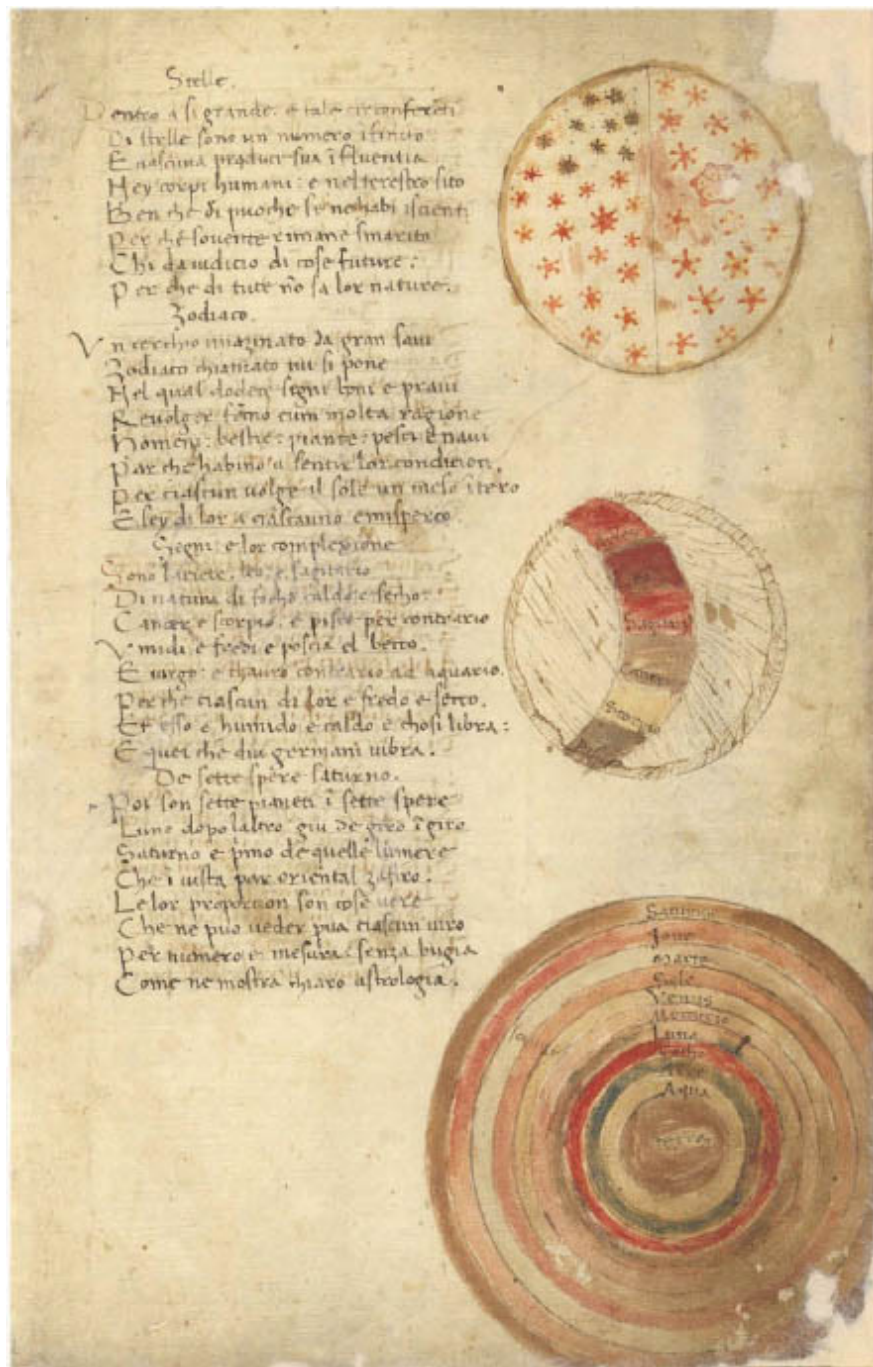 Stelle.
Dentro a si grande. e tale circonferēti
Di stelle sono un numero ifinito
E ciascuna produci sua ĩfluentia
Ney corpi humani: e nel terestro sito
Ben che di puoche se nehabi iscienti
Per che souente rimane smarito
Chi da iudicio di cose future:
Per che di tute nō sa lor nature.
Zodiaco.
Vn cerchio imazinato da gran saui
Zodiaco chiamato iui si pone
Nel qual dodece segni boni e praui
Reuolger fāno cum molta ragione
Homeny: bestie: piante: pesci e naui
Par che habino a sentir lor condicion.
Per ciascun uolge il sole un mese ĩtero
E ley di lor a ciascauno emispero
Segni e lor complexione
Sono lariete. leo. e sagitario
Di natura di focho caldo e secho.
Cancer e scorpio. e pisce per contrario
Vmidi e fredi e poscia el becco.
E uirgo. e thauro contrario ad aquario.
Perche ciascun di lor e fredo e secco.
Et esso e humido e caldo e chosi libra:
E quei che diu germani uibra.
De sette spere saturno.
Poi son sette pianeti ĩ sette spere
Luno dopo laltro giu de giro ĩ giro
Saturno e p̄mo de quelle lumere
Che ĩ uista par oriental zafiro.
Le lor proporcion son cose uere
Che ne puo ueder pua ciascun uiro
Per numero e mesura: senza bugia
Come ne mostra chiaro astrologia.
Leo
Sagitario
Cancer
Scorpio
Pisce
Saturno
Joue
Marte
Sole
Venus
Mercurio
Luna
Focho
Aere
Aqua
terra